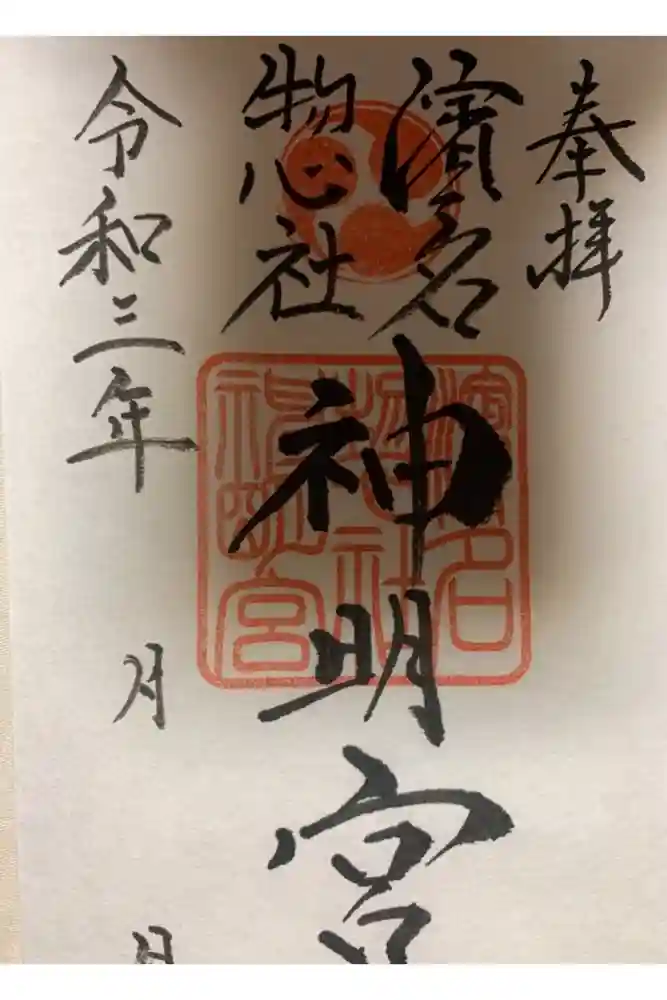 奉拝
濱名
惣社
神明宮
濱名
惣社
神明宮
令和三年
月
日